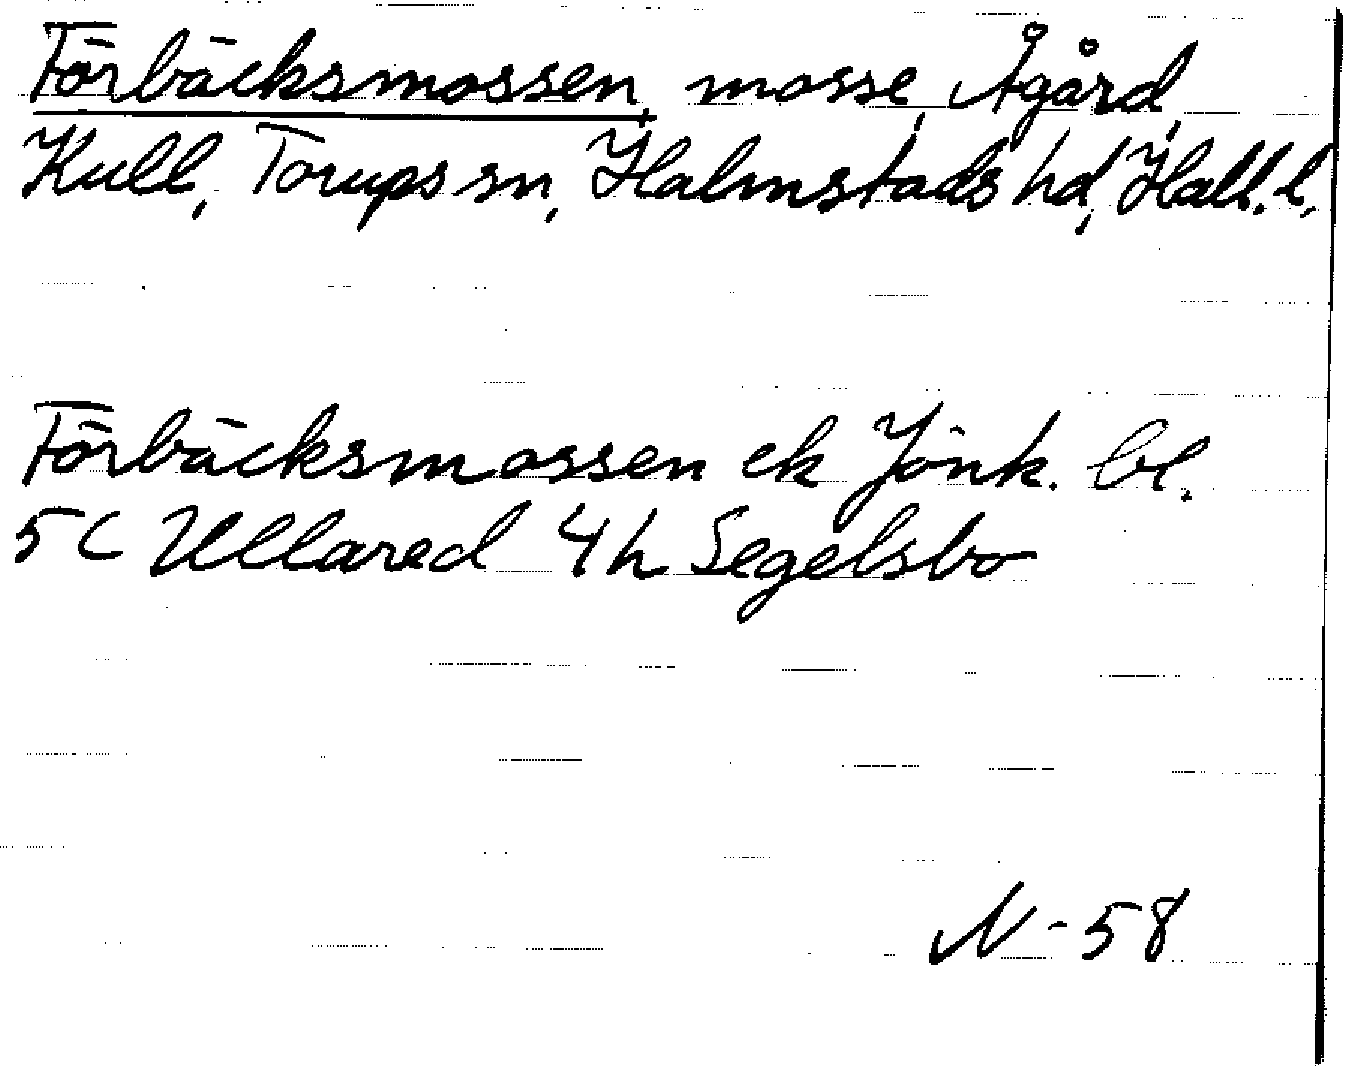 Förbäcksmossen, mosse, Ågård,
Kull, Torups sn, Halmstads hd, Hall. l.
Förbäcksmossen ek Jönk. bl.
5C Ullared 4h Segelsbo
N-58